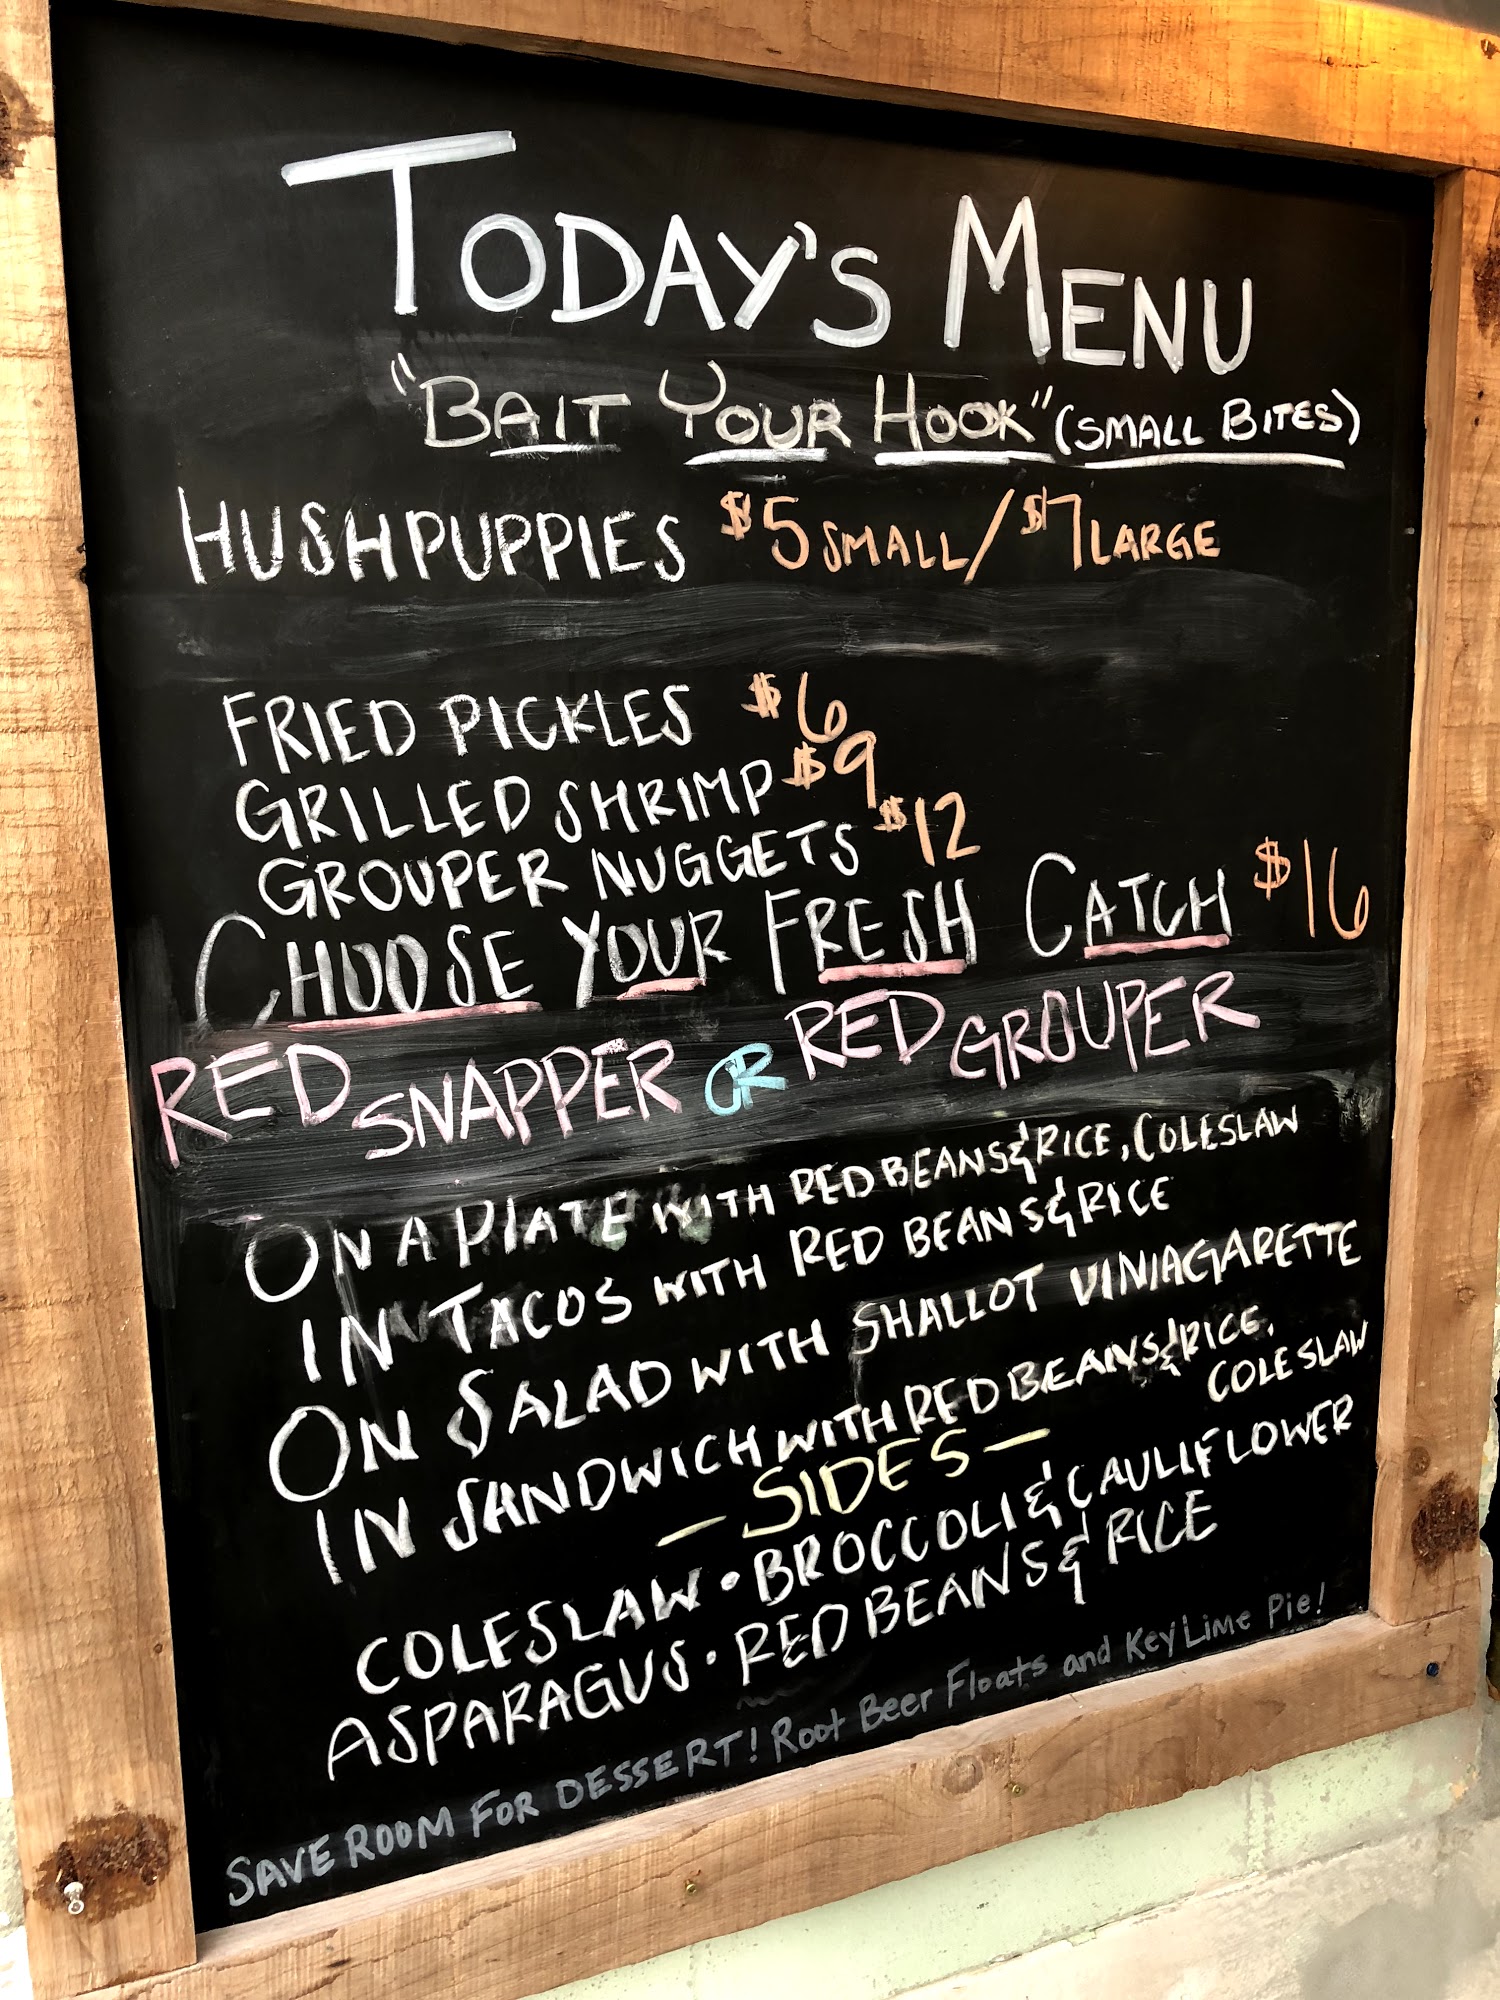 TODAY'S MENU
"BAIT YOUR HOOK" (SMALL BITES)
HUSHPUPPIES $5 SMALL/$7 LARGE
FRIED PICKLES $6
GRILLED SHRIMP $9
GROUPER NUGGETS $12
CHOOSE YOUR FRESH CATCH $16
RED SNAPPER OR RED GROUPER
ON A PLATE WITH RED BEANS & RICE, COLESLAW
IN TACOS WITH RED BEANS & RICE
ON SALAD WITH SHALLOT VINIAGARETTE
IN SANDWICH WITH RED BEANS & RICE,
COLESLAW
- SIDES -
COLESLAW • BROCCOLI & CAULIFLOWER
ASPARAGUS • RED BEANS & RICE
SAVE ROOM FOR DESSERT! Root Beer Floats and Key Lime Pie!